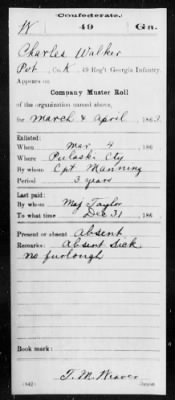 Confederate.
W 49 Ga.
Charles Walker
Pvt, Co. K, 49 Reg't Georgia Infantry.
Appears on
Company Muster Roll
of the organization named above,
for March & April, 1863.
Enlisted:
When Mar 4, 186
Where Pulaski Cty
By whom Cpt Manning
Period 3 years
Last paid:
By whom Maj Taylor
To what time Dec 31, 186
Present or absent Absent
Remarks: Absent Sick
no furlough
Book mark:
T. M. Weaver
(642) Copyist.